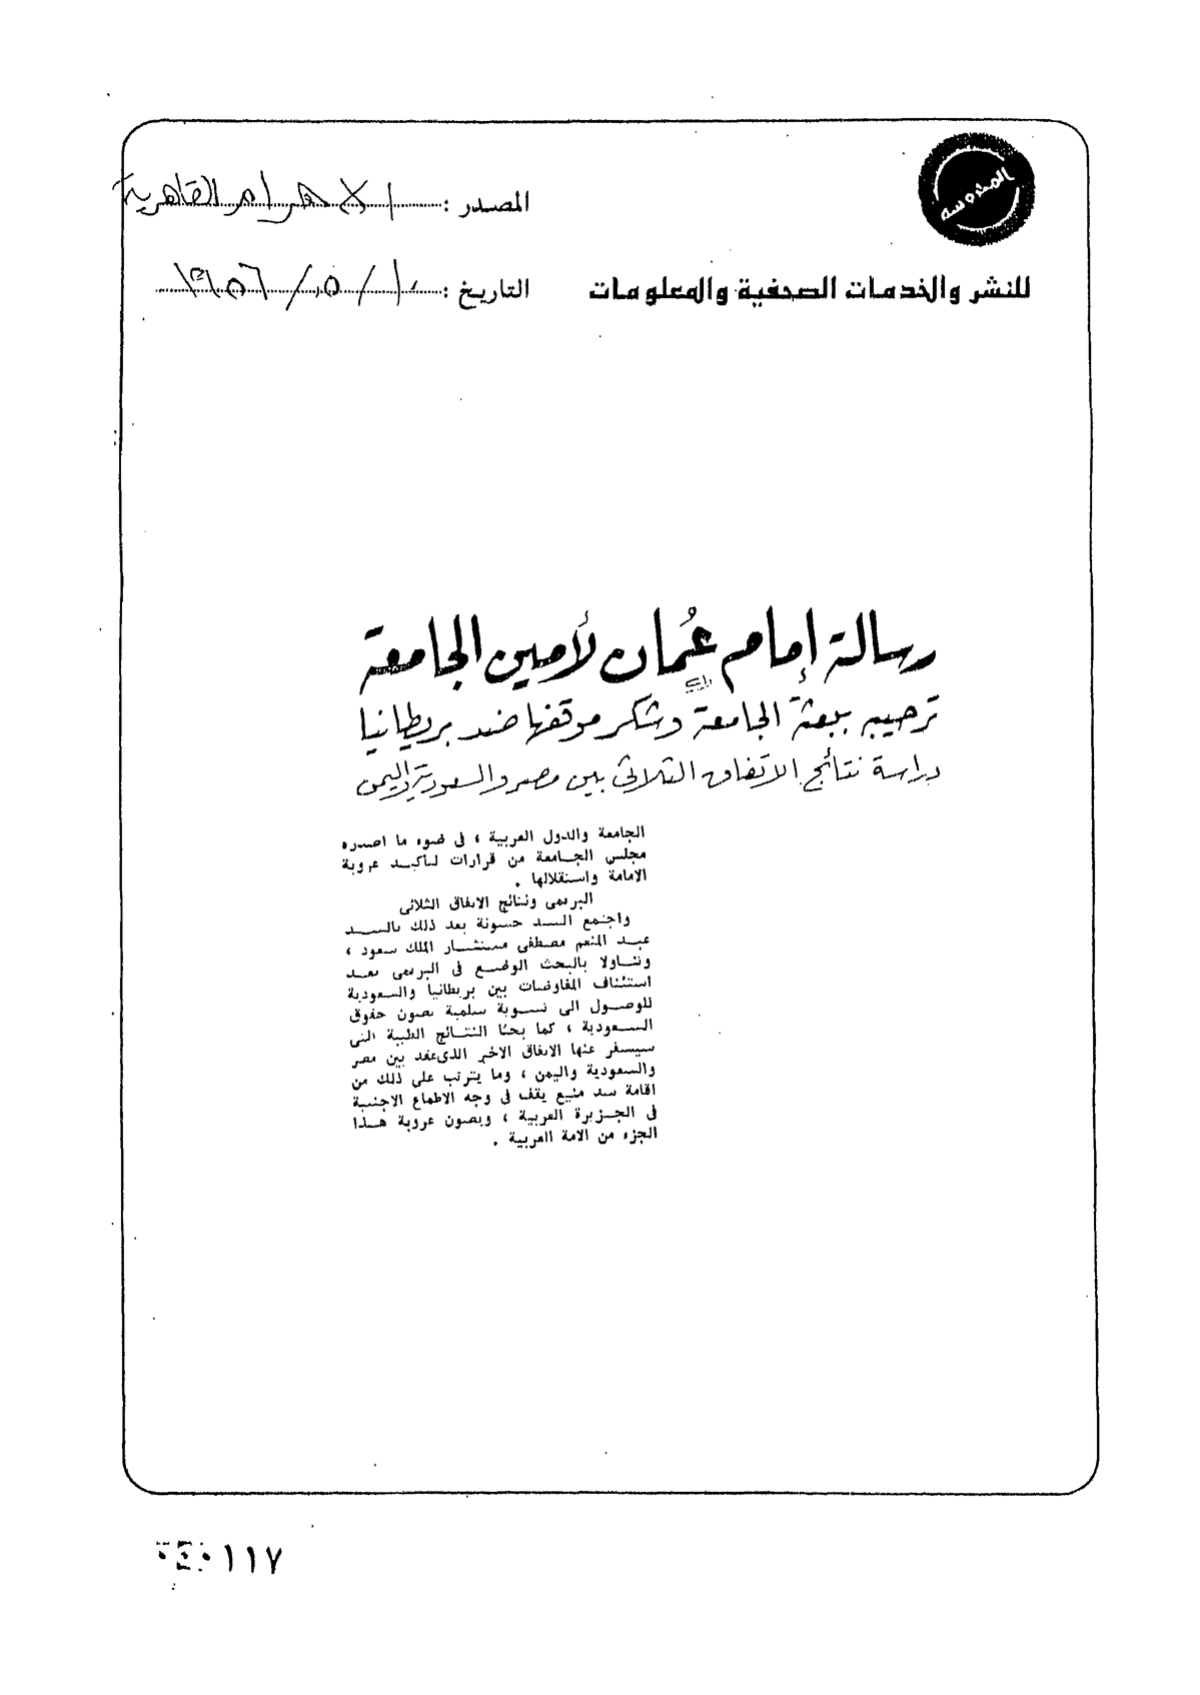 المحروسة
للنشر والخدمات الصحفية والمعلومات
المصدر : الاهرام القاهرية
التاريخ : ١٠ / ٥ / ١٩٥٦
رسالة إمام عُمان لأمين الجامعة
ترحيبه ببعثة الجامعة وشكر موقفها ضد بريطانيا
دراسة نتائج الاتفاق الثلاثى بين مصر والسعودية واليمن
الجامعة والدول العربية ، فى ضوء ما اصدره
مجلس الجامعة من قرارات لتأكيد عروبة
الامامة واستقلالها .
البريمى ونتائج الاتفاق الثلاثى
واجتمع السيد حسونة بعد ذلك بالسيد
عبد المنعم مصطفى مستشار الملك سعود ،
وتناولا بالبحث الوضع فى البريمى بعد
استئناف المفاوضات بين بريطانيا والسعودية
للوصول الى تسوية سلمية تصون حقوق
السعودية ، كما بحثا النتائج الطيبة التى
سيسفر عنها الاتفاق الاخير الذى عقد بين مصر
والسعودية واليمن ، وما يترتب على ذلك من
اقامة سد منيع يقف فى وجه الاطماع الاجنبية
فى الجزيرة العربية ، ويصون عروبة هذا
الجزء من الامة العربية .
١١٧